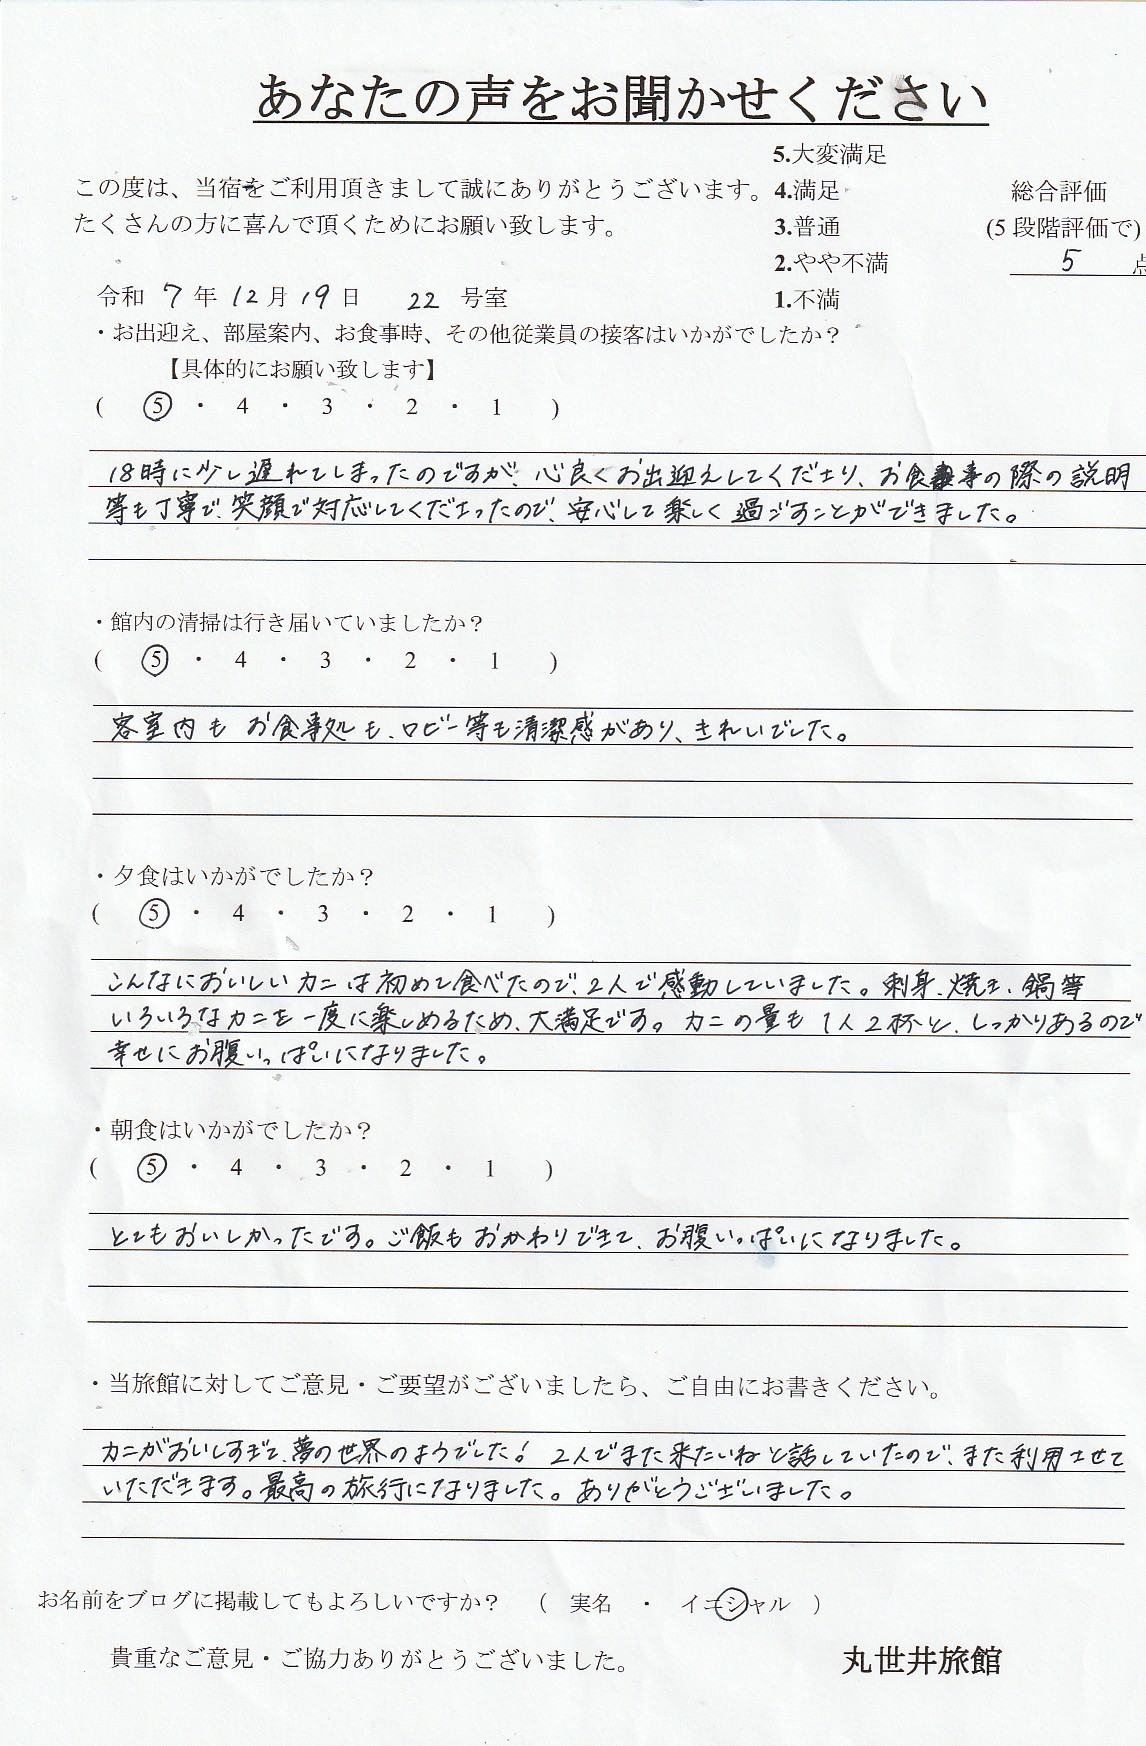 あなたの声をお聞かせください
5.大変満足
この度は、当宿をご利用頂きまして誠にありがとうございます。 4.満足 総合評価
たくさんの方に喜んで頂くためにお願い致します。 3.普通 (5段階評価で)
2.やや不満 5 点
令和 7 年 12 月 19 日 22 号室 1.不満
・お出迎え、部屋案内、お食事時、その他従業員の接客はいかがでしたか？
【具体的にお願い致します】
( 5 ・ 4 ・ 3 ・ 2 ・ 1 )
18時に少し遅れてしまったのですが、心良くお出迎えしてくださり、お食事の際の説明
等も丁寧で、笑顔で対応してくださったので、安心して楽しく過ごすことができました。
・館内の清掃は行き届いていましたか？
( 5 ・ 4 ・ 3 ・ 2 ・ 1 )
客室内も お食事処も、ロビー等も清潔感があり、きれいでした。
・夕食はいかがでしたか？
( 5 ・ 4 ・ 3 ・ 2 ・ 1 )
こんなにおいしいカニは初めて食べたので、2人で感動していました。刺身、焼き、鍋等
いろいろなカニを一度に楽しめるため、大満足です。カニの量も1人2杯と、しっかりあるので
幸せにお腹いっぱいになりました。
・朝食はいかがでしたか？
( 5 ・ 4 ・ 3 ・ 2 ・ 1 )
とてもおいしかったです。ご飯もおかわりできて、お腹いっぱいになりました。
・当旅館に対してご意見・ご要望がございましたら、ご自由にお書きください。
カニがおいしすぎて、夢の世界のようでした！ 2人でまた来たいねと話していたので、また利用させて
いただきます。最高の旅行になりました。ありがとうございました。
お名前をブログに掲載してもよろしいですか？ （ 実名 ・ イニシャル ）
貴重なご意見・ご協力ありがとうございました。 丸世井旅館